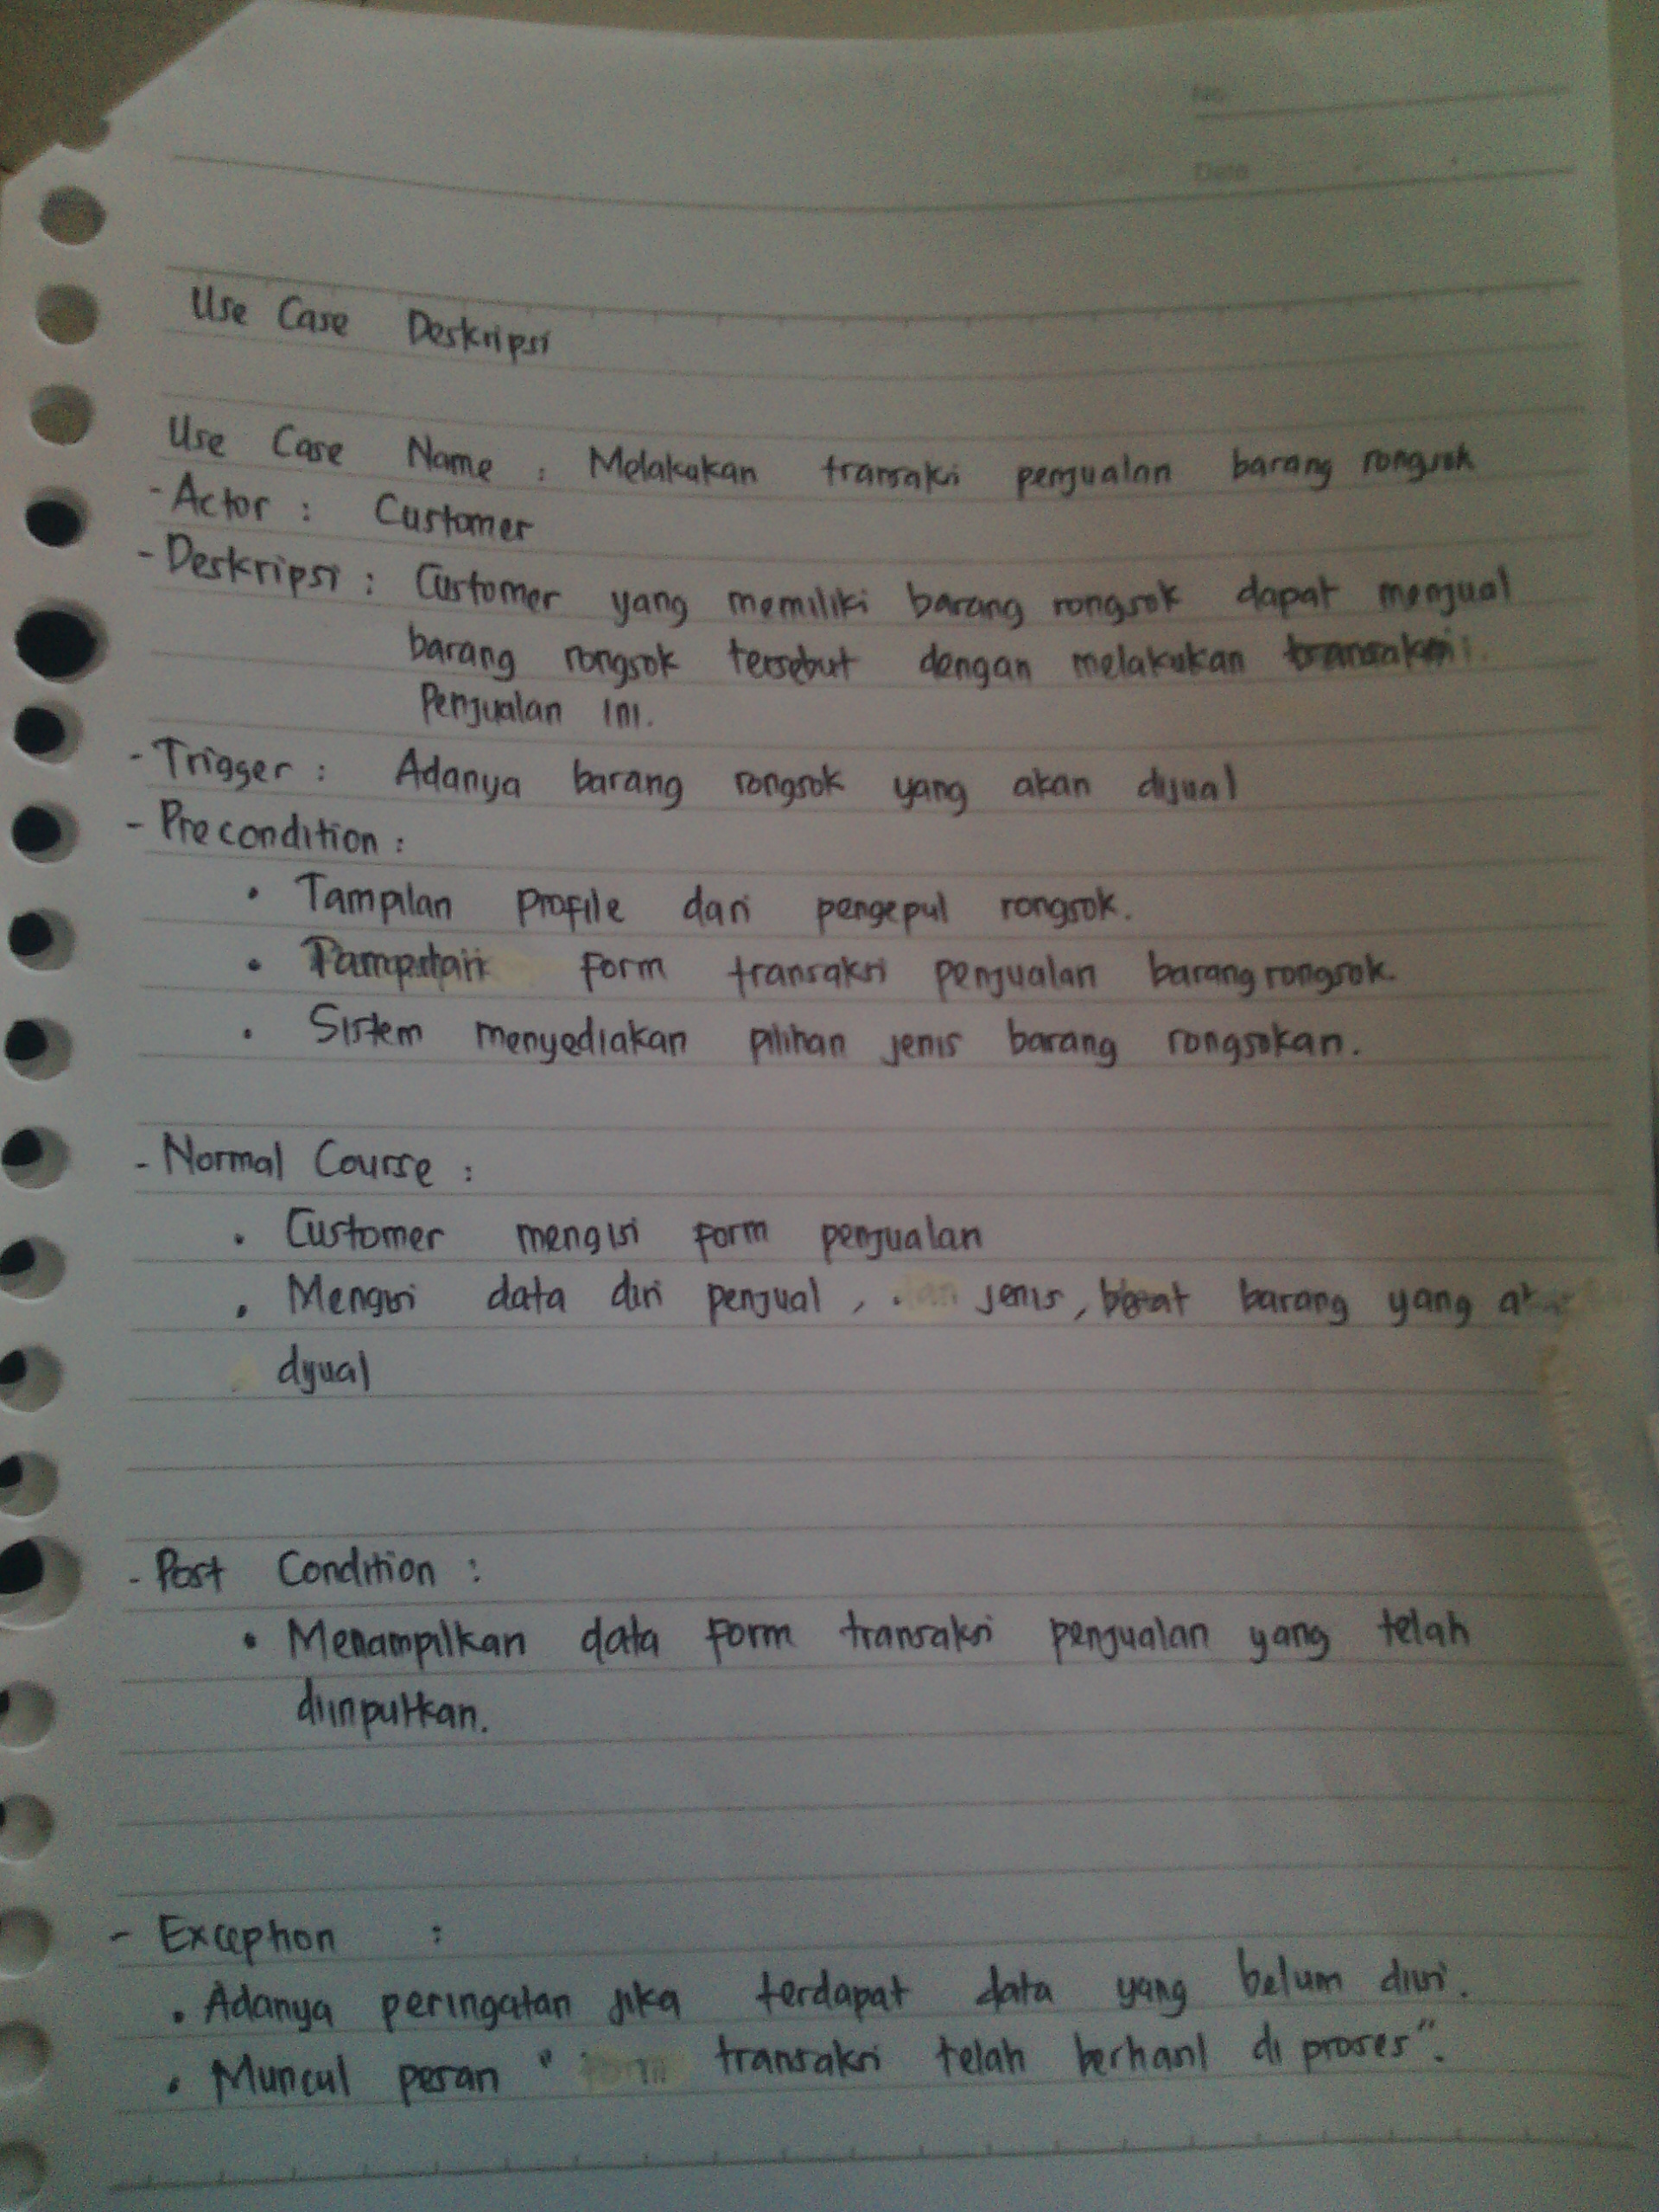 No
Date
Use Case Deskripsi
Use Case Name : Melakukan transaksi penjualan barang rongsok
- Actor : Customer
- Deskripsi : Customer yang memiliki barang rongsok dapat menjual
barang rongsok tersebut dengan melakukan transaksi
Penjualan ini.
- Trigger : Adanya barang rongsok yang akan dijual
- Precondition :
• Tampilan profile dari pengepul rongsok.
• form transaksi penjualan barang rongsok.
• Sistem menyediakan pilihan jenis barang rongsokan.
- Normal Course :
• Customer mengisi form penjualan
• Mengisi data diri penjual , jenis, berat barang yang
dijual
- Post Condition :
• Menampilkan data form transaksi penjualan yang telah
diinputkan.
- Exception :
• Adanya peringatan jika terdapat data yang belum diisi.
• Muncul pesan " transaksi telah berhasil di proses".